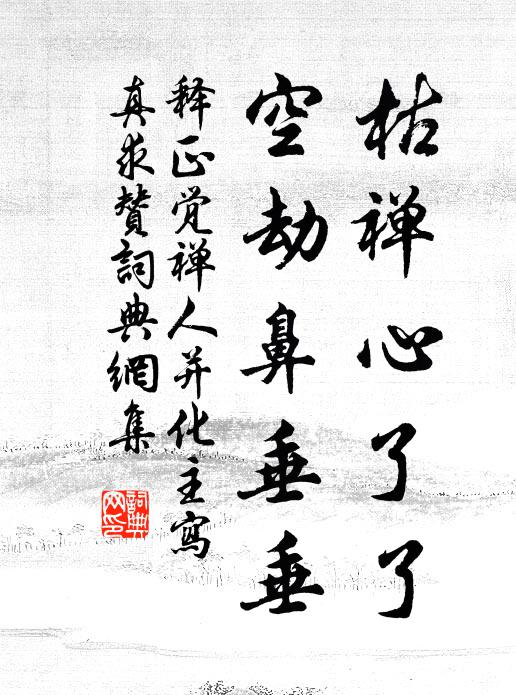 枯禅心了了
空劫鼻垂垂
释正觉禅人并化主寫
真求賛詞典網集
詞典
网印